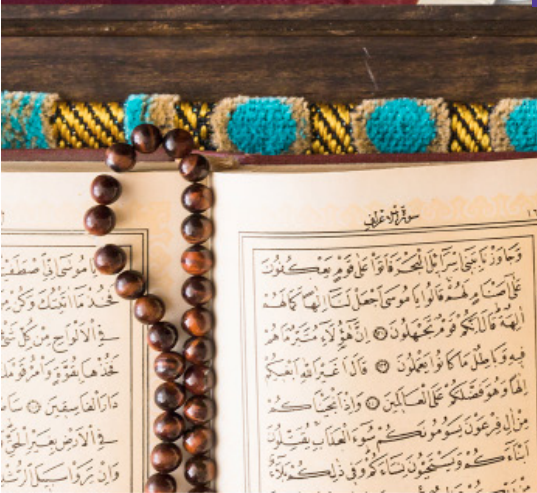 سورة الأعراف
وَجَاوَزْنَا بِبَنِي إِسْرَائِيلَ الْبَحْرَ فَأَتَوْا عَلَى قَوْمٍ يَعْكُفُونَ
عَلَى أَصْنَامٍ لَهُمْ قَالُوا يَا مُوسَى اجْعَلْ لَنَا إِلَهًا كَمَا لَهُمْ
آلِهَةٌ قَالَ إِنَّكُمْ قَوْمٌ تَجْهَلُونَ ۝ إِنَّ هَؤُلَاءِ مُتَبَّرٌ مَا هُمْ
فِيهِ وَبَاطِلٌ مَا كَانُوا يَعْمَلُونَ ۝ قَالَ أَغَيْرَ اللَّهِ أَبْغِيكُمْ
إِلَهًا وَهُوَ فَضَّلَكُمْ عَلَى الْعَالَمِينَ ۝ وَإِذْ أَنْجَيْنَاكُمْ
مِنْ آلِ فِرْعَوْنَ يَسُومُونَكُمْ سُوءَ الْعَذَابِ يُقَتِّلُونَ
أَبْنَاءَكُمْ وَيَسْتَحْيُونَ نِسَاءَكُمْ وَفِي ذَلِكُمْ بَلَاءٌ
يَا مُوسَى إِنِّي
فَخُذْ مَا آتَيْتُكَ وَكُنْ
فِي الْأَلْوَاحِ مِنْ كُلِّ
فَخُذْهَا بِقُوَّةٍ وَأْمُرْ
دَارَ الْفَاسِقِينَ ۝
فِي الْأَرْضِ بِغَيْرِ الْحَقِّ
وَإِنْ يَرَوْا سَبِيلَ